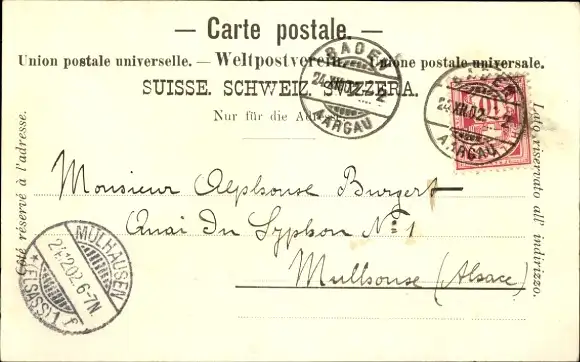 — Carte postale. —
Union postale universelle. — Weltpostverein. — Unione postale universale.
SUISSE. SCHWEIZ. SVIZZERA.
Nur für die Adresse.
Côté réservé à l'adresse.
Lato riservato all' indirizzo.
BADEN
24.XII.02 - 2
AARGAU
BADEN
24.XII.02 - 2
AARGAU
10
Monsieur Alphonse Burgert
Quai du Syphon No 1
Mulhouse (Alsace)
MÜLHAUSEN
24.12.02. 6-7N.
*(ELSASS) 1 f